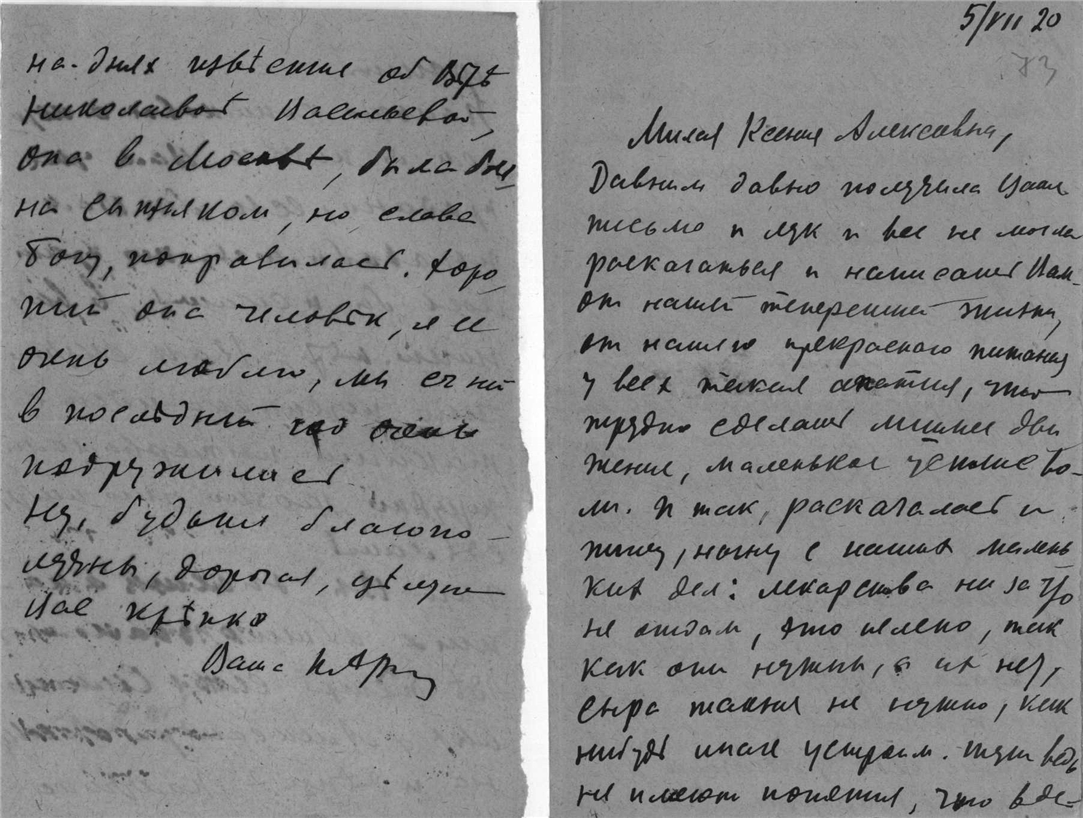 на-днях извѣстия об Вѣрѣ
Николаевнѣ Васильевой,
она в Москвѣ, была боль
на сыпняком, но слава
Богу, поправилась. Хоро
ший она человѣк, я ее
очень люблю, мы с ней
в последний год очень
подружились
Ну, будьте благопо-
лучны, дорогая, цѣлую
Вас крѣпко
Ваша
5/VII 20
73
Милая Ксения Алексеевна,
Давним давно получила Ваше
письмо и лук и все не могла
раскачаться и написать Вам.
от нашей теперешней жизни,
от нашего прекрасного питания
у всех такая апатия, что
трудно сделать лишнее дви
жение, маленькое усилие во-
ли. И так, раскачалась и
пишу, начну с наших малень
ких дел: лекарства ни за что
не отдам, это нелепо, так
как они нужны, а их нет,
сыра также не нужно, как
нибудь иначе устроим. тут ведь
не имеют понятия, что в де-